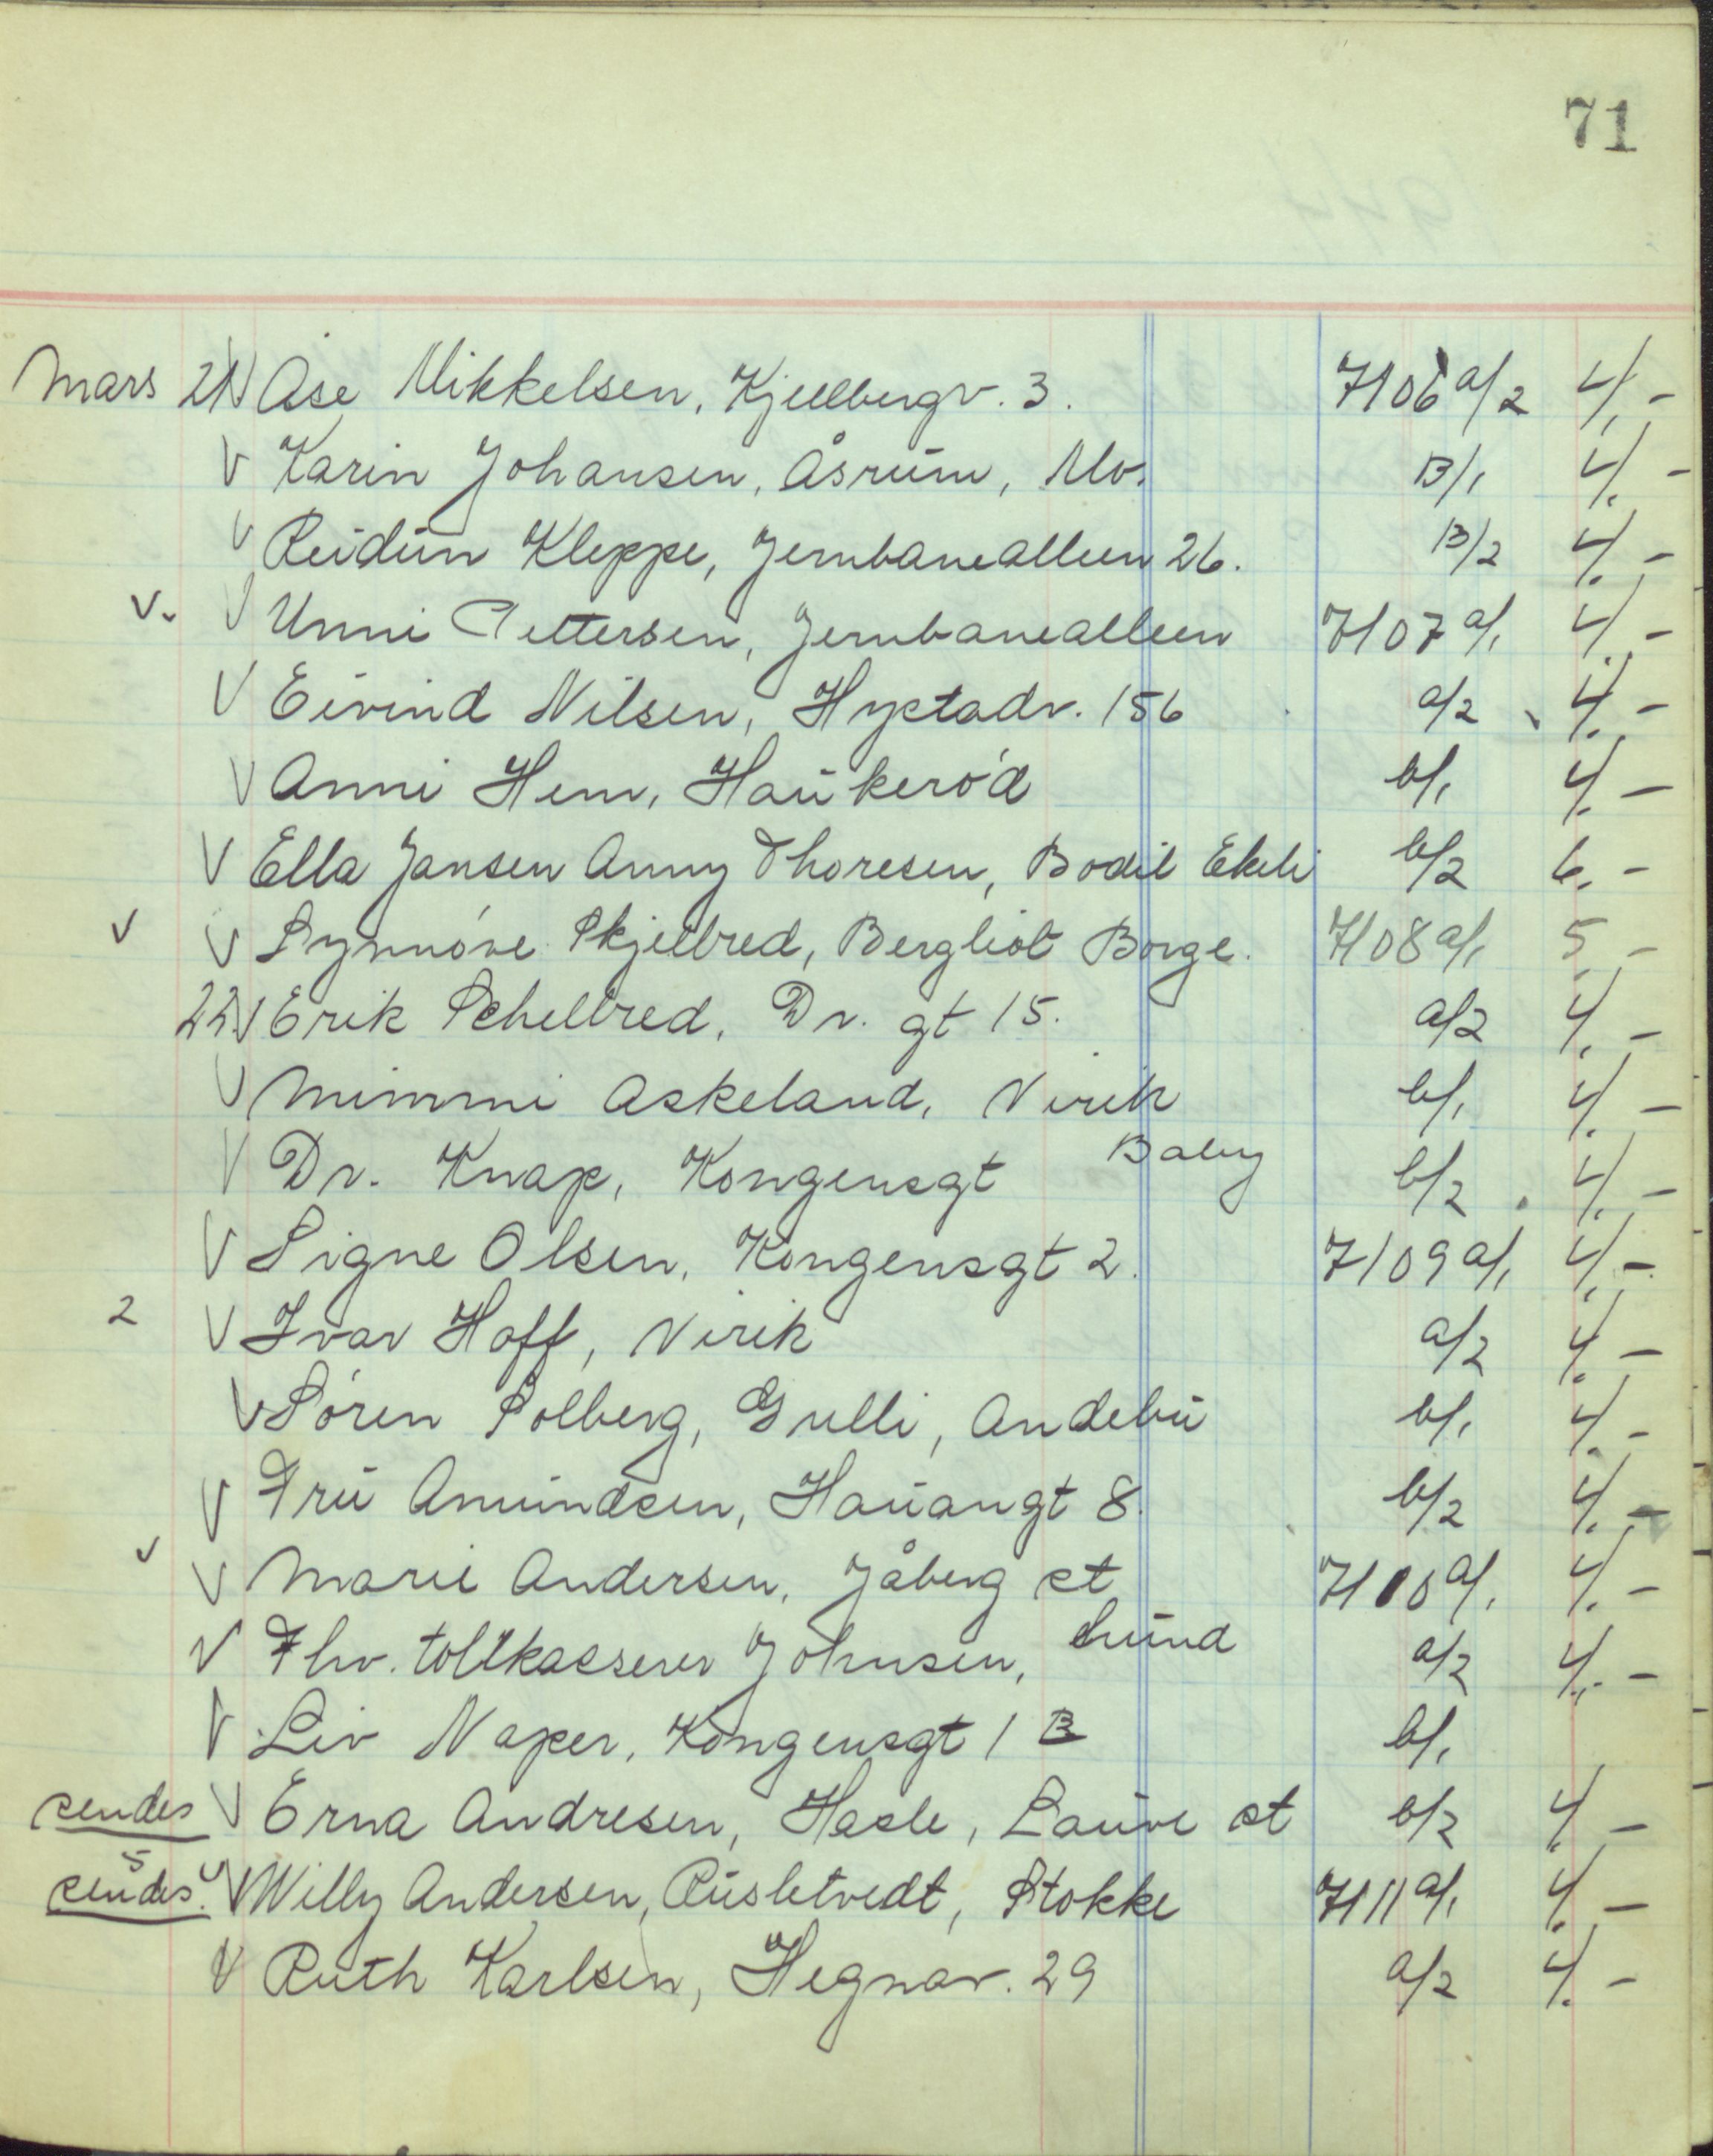 71
Mars 21 V Åse Mikkelsen, Kjellbergv. 3. 7106 a/2 4,-
V Karin Johansen, Åsrum, Mo. B/1 4,-
V Reidun Kleppe, Jernbanealleen 26. B/2 4,-
V. V Unni Pettersen, Jernbanealleen 7107 a/1 4,-
V Eivind Nilsen, Hystadv. 156 a/2 4,-
V Anni Hem, Haukerød b/1 4,-
V Ella Jansen Anny Thoresen, Bodil Ekeli b/2 6,-
V V Synnøve Skjelbred, Bergliot Borge. 7108 a/1 5,-
22. V Erik Schelbred, Dr. gt 15. a/2 4,-
V Mimmi Askeland, Virik b/1 4,-
V Dr. Knap, Kongensgt Baby b/2 4,-
V Signe Olsen, Kongensgt 2. 7109 a/1 4,-
2 V Ivar Hoff, Virik a/2 4,-
V Søren Solberg, Gulli, Andebu b/1 4,-
V Fru Amundsen, Hauangt 8. b/2 4,-
V V Marie Andersen, Jåberg st 7110 a/1 4,-
V Fhv. tollkasserer Johnsen, hund a/2 4,-
V Liv Naper, Kongensgt 1 B b/1
sendes V Erna Andresen, Hasle, Lauve st b/2 4,-
5
sendes. V V Willy Andersen, Rusletvedt, Stokke 7111 a/1 4,-
V Ruth Karlsen, Hegnav. 29 a/2 4,-